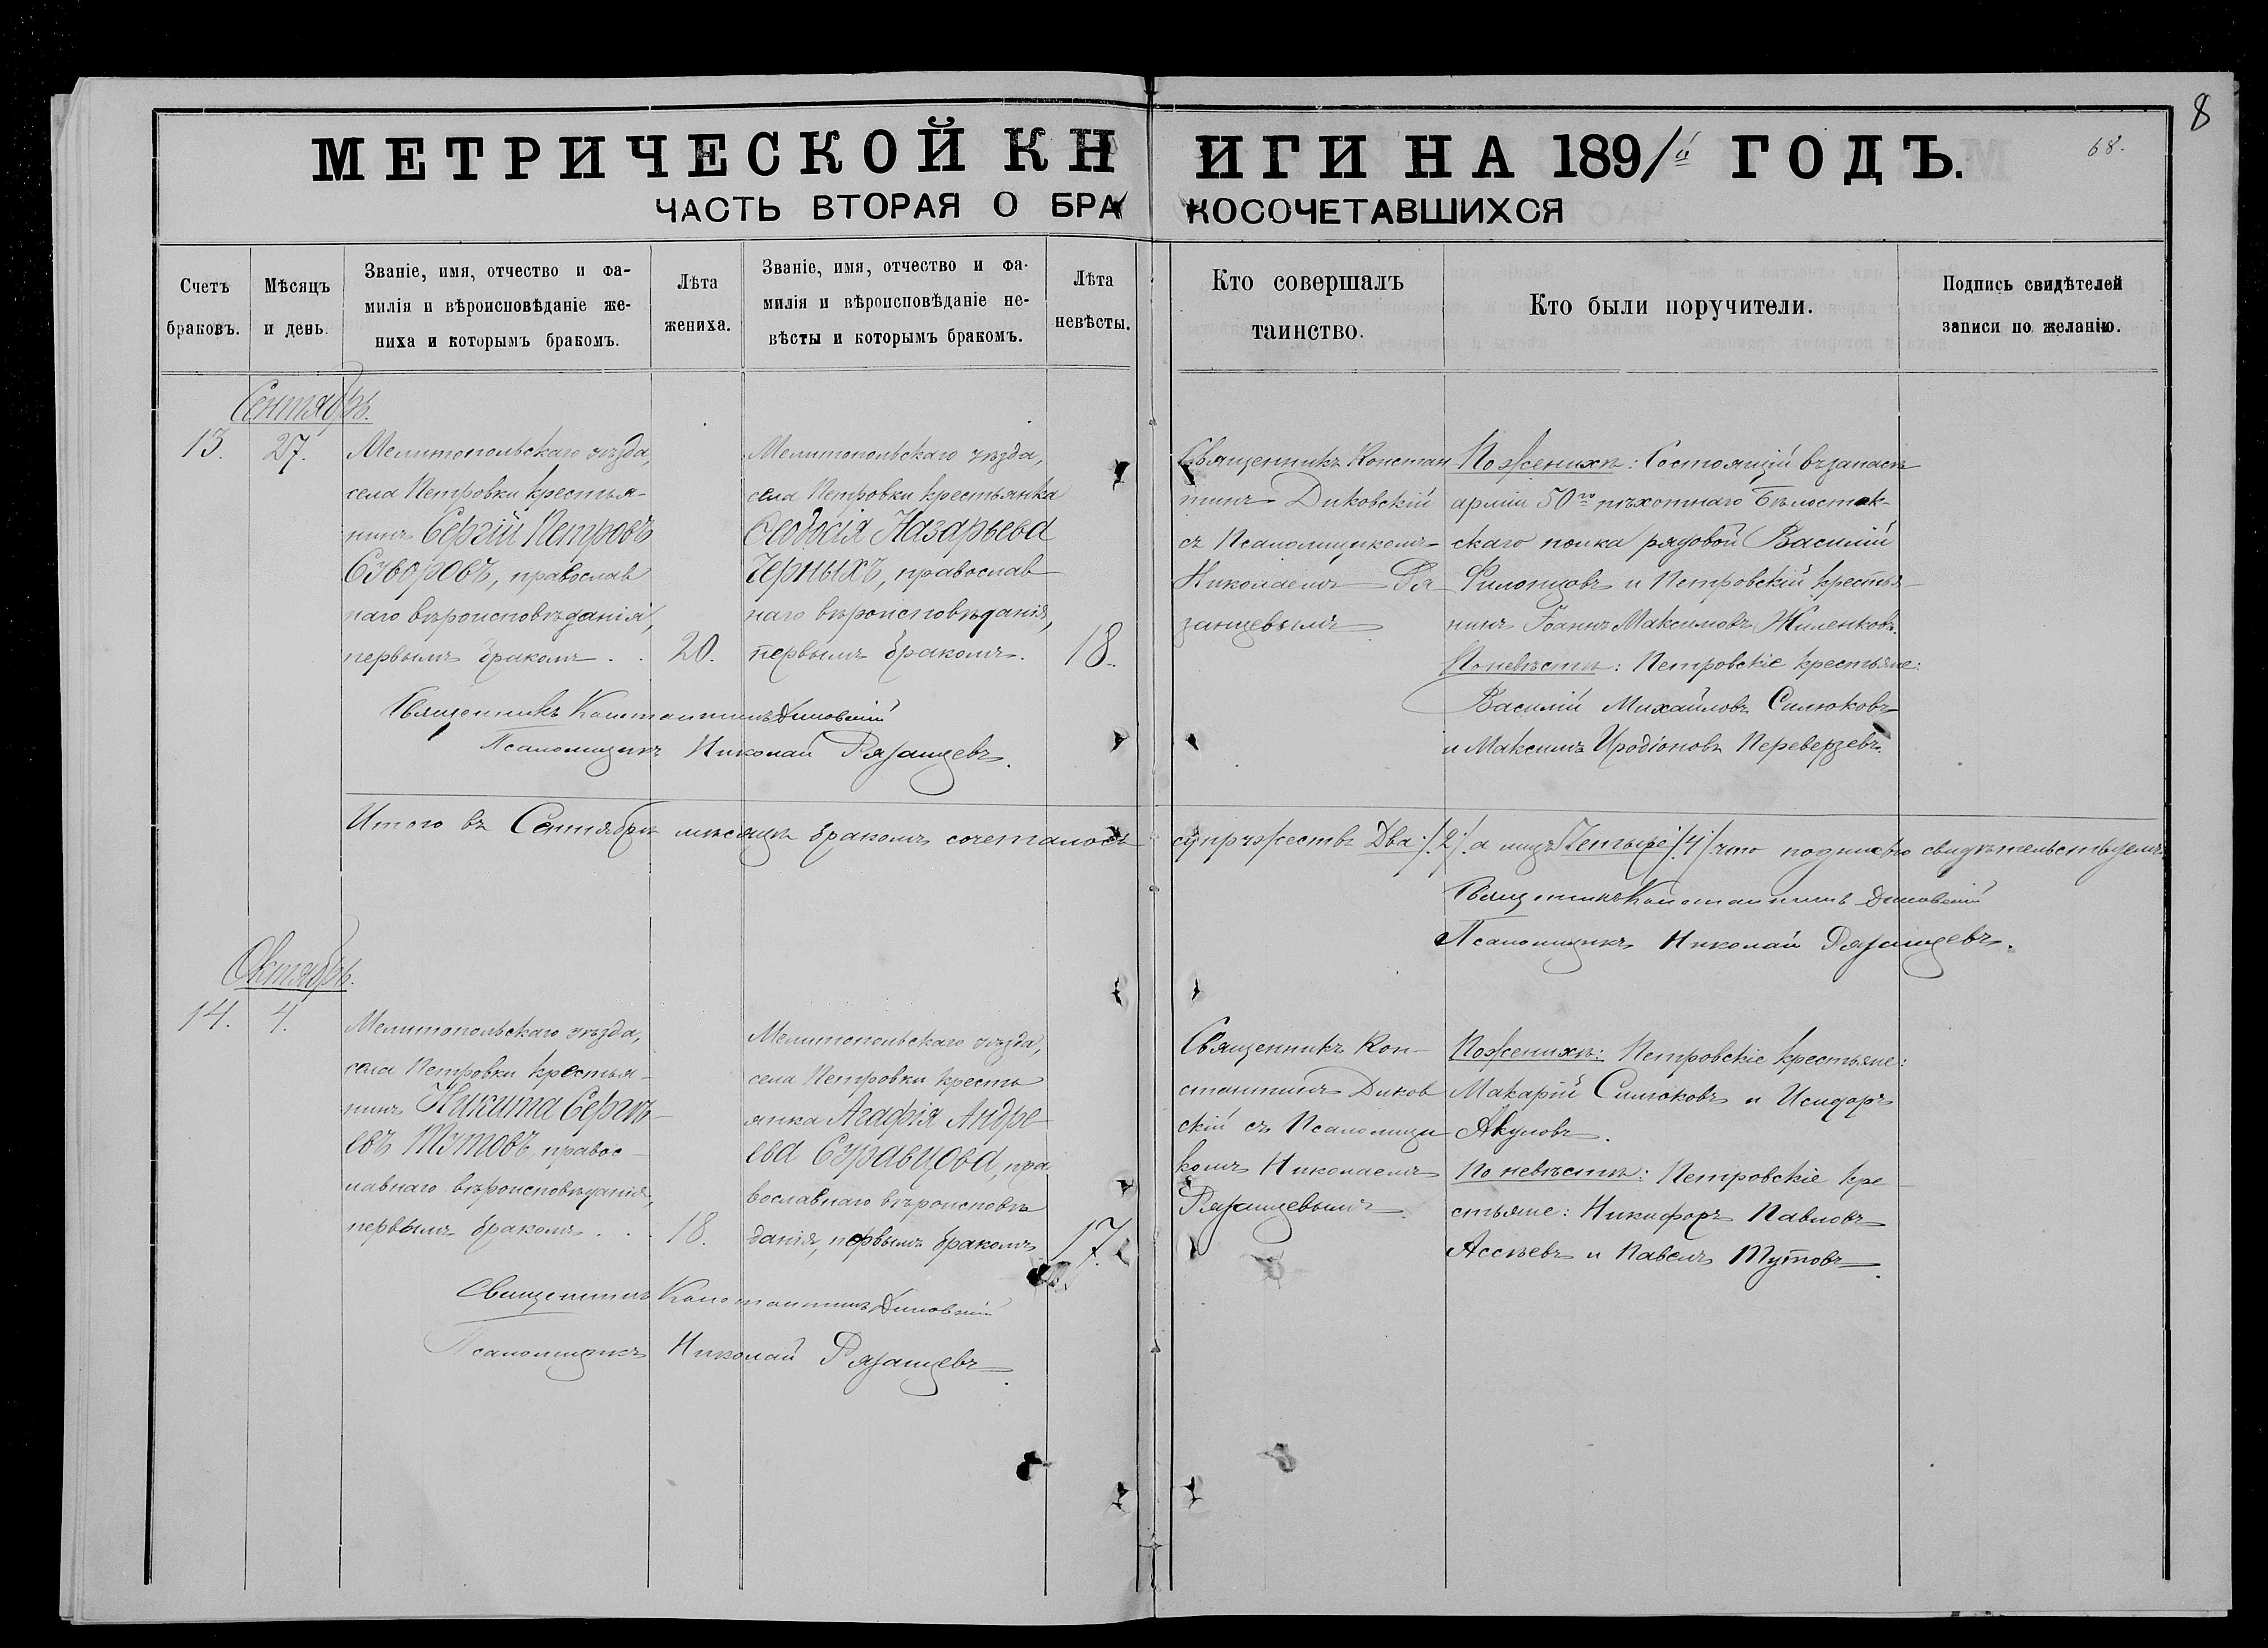 8
68.
МЕТРИЧЕСКОЙ КНИГИ НА 1891й ГОДЪ.
ЧАСТЬ ВТОРАЯ О БРАКОСОЧЕТАВШИХСЯ
Счетъ
браковъ.
Мѣсяцъ
и день.
Званіе, имя, отчество и фа-
милія и вѣроисповѣданіе же-
ниха и которымъ бракомъ.
Лѣта
жениха.
Званіе, имя, отчество и фа-
милія и вѣроисповѣданіе не-
вѣсты и которымъ бракомъ.
Лѣта
невѣсты.
Кто совершалъ
таинство.
Кто были поручители.
Подпись свидѣтелей
записи по желанію.
Сентябрь.
13.
27.
Мелитопольскаго уѣзда,
села Петровки крестья-
нинъ Сергій Петровъ
Суворовъ, православ
наго вѣроисповѣданія,
первымъ бракомъ . .
20.
Мелитопольскаго уѣзда,
села Петровки крестьянка
Ѳеодосія Назарьева
Черныхъ, православ
наго вѣроисповѣданія,
первымъ бракомъ.
18.
Священникъ Констан
тинъ Диковскій
съ Псаломщикомъ
Николаемъ Ря
занцевымъ
По женихѣ: Состоящій въ запасѣ
арміи 50го пѣхотнаго Бѣлосток-
скаго полка рядовой Василій
Филонцовъ и Петровскій крестья
нинъ Іоаннъ Максимовъ Жиленковъ.
По невѣстѣ: Петровскіе крестьяне:
Василій Михайловъ Силюковъ
и Максимъ Иродіоновъ Переверзевъ.
Священникъ Константинъ Диковскій
Псаломщикъ Николай Рязанцевъ.
Итого въ Сентябрѣ мѣсяцѣ бракомъ сочеталось супружествъ Два /2/. а лицъ Четыре /4/ что подписью свидѣтельствуемъ
Священникъ Константинъ Диковскій
Псаломщикъ Николай Рязанцевъ.
Октябрь.
14.
4.
Мелитопольскаго уѣзда,
села Петровки крестья-
нинъ Никита Сергѣ-
евъ Тутовъ, правос-
лавнаго вѣроисповѣданія,
первымъ бракомъ . . .
18.
Мелитопольскаго уѣзда,
села Петровки кресть
янка Агафія Андре
ева Суравцова, пра
вославнаго вѣроисповѣ
данія, первымъ бракомъ
17.
Священникъ Кон-
стантинъ Диков
скій съ Псаломщи
комъ Николаемъ
Рязанцевымъ.
По женихѣ: Петровскіе крестьяне:
Макарій Силюковъ и Исидоръ
Акуловъ.
По невѣстѣ: Петровскіе кре
стьяне: Никифоръ Павловъ
Ассѣевъ и Павелъ Тутовъ.
Священникъ Константинъ Диковскій
Псаломщикъ Николай Рязанцевъ.